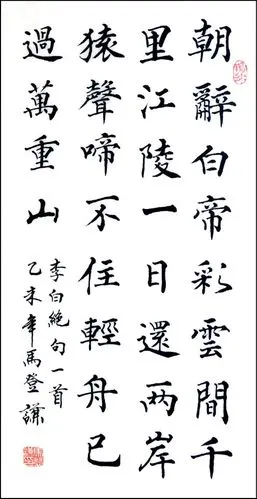 朝辭白帝彩雲間千
里江陵一日還兩岸
猿聲啼不住輕舟已
過萬重山
李白絕句一首
乙未年馬登謙